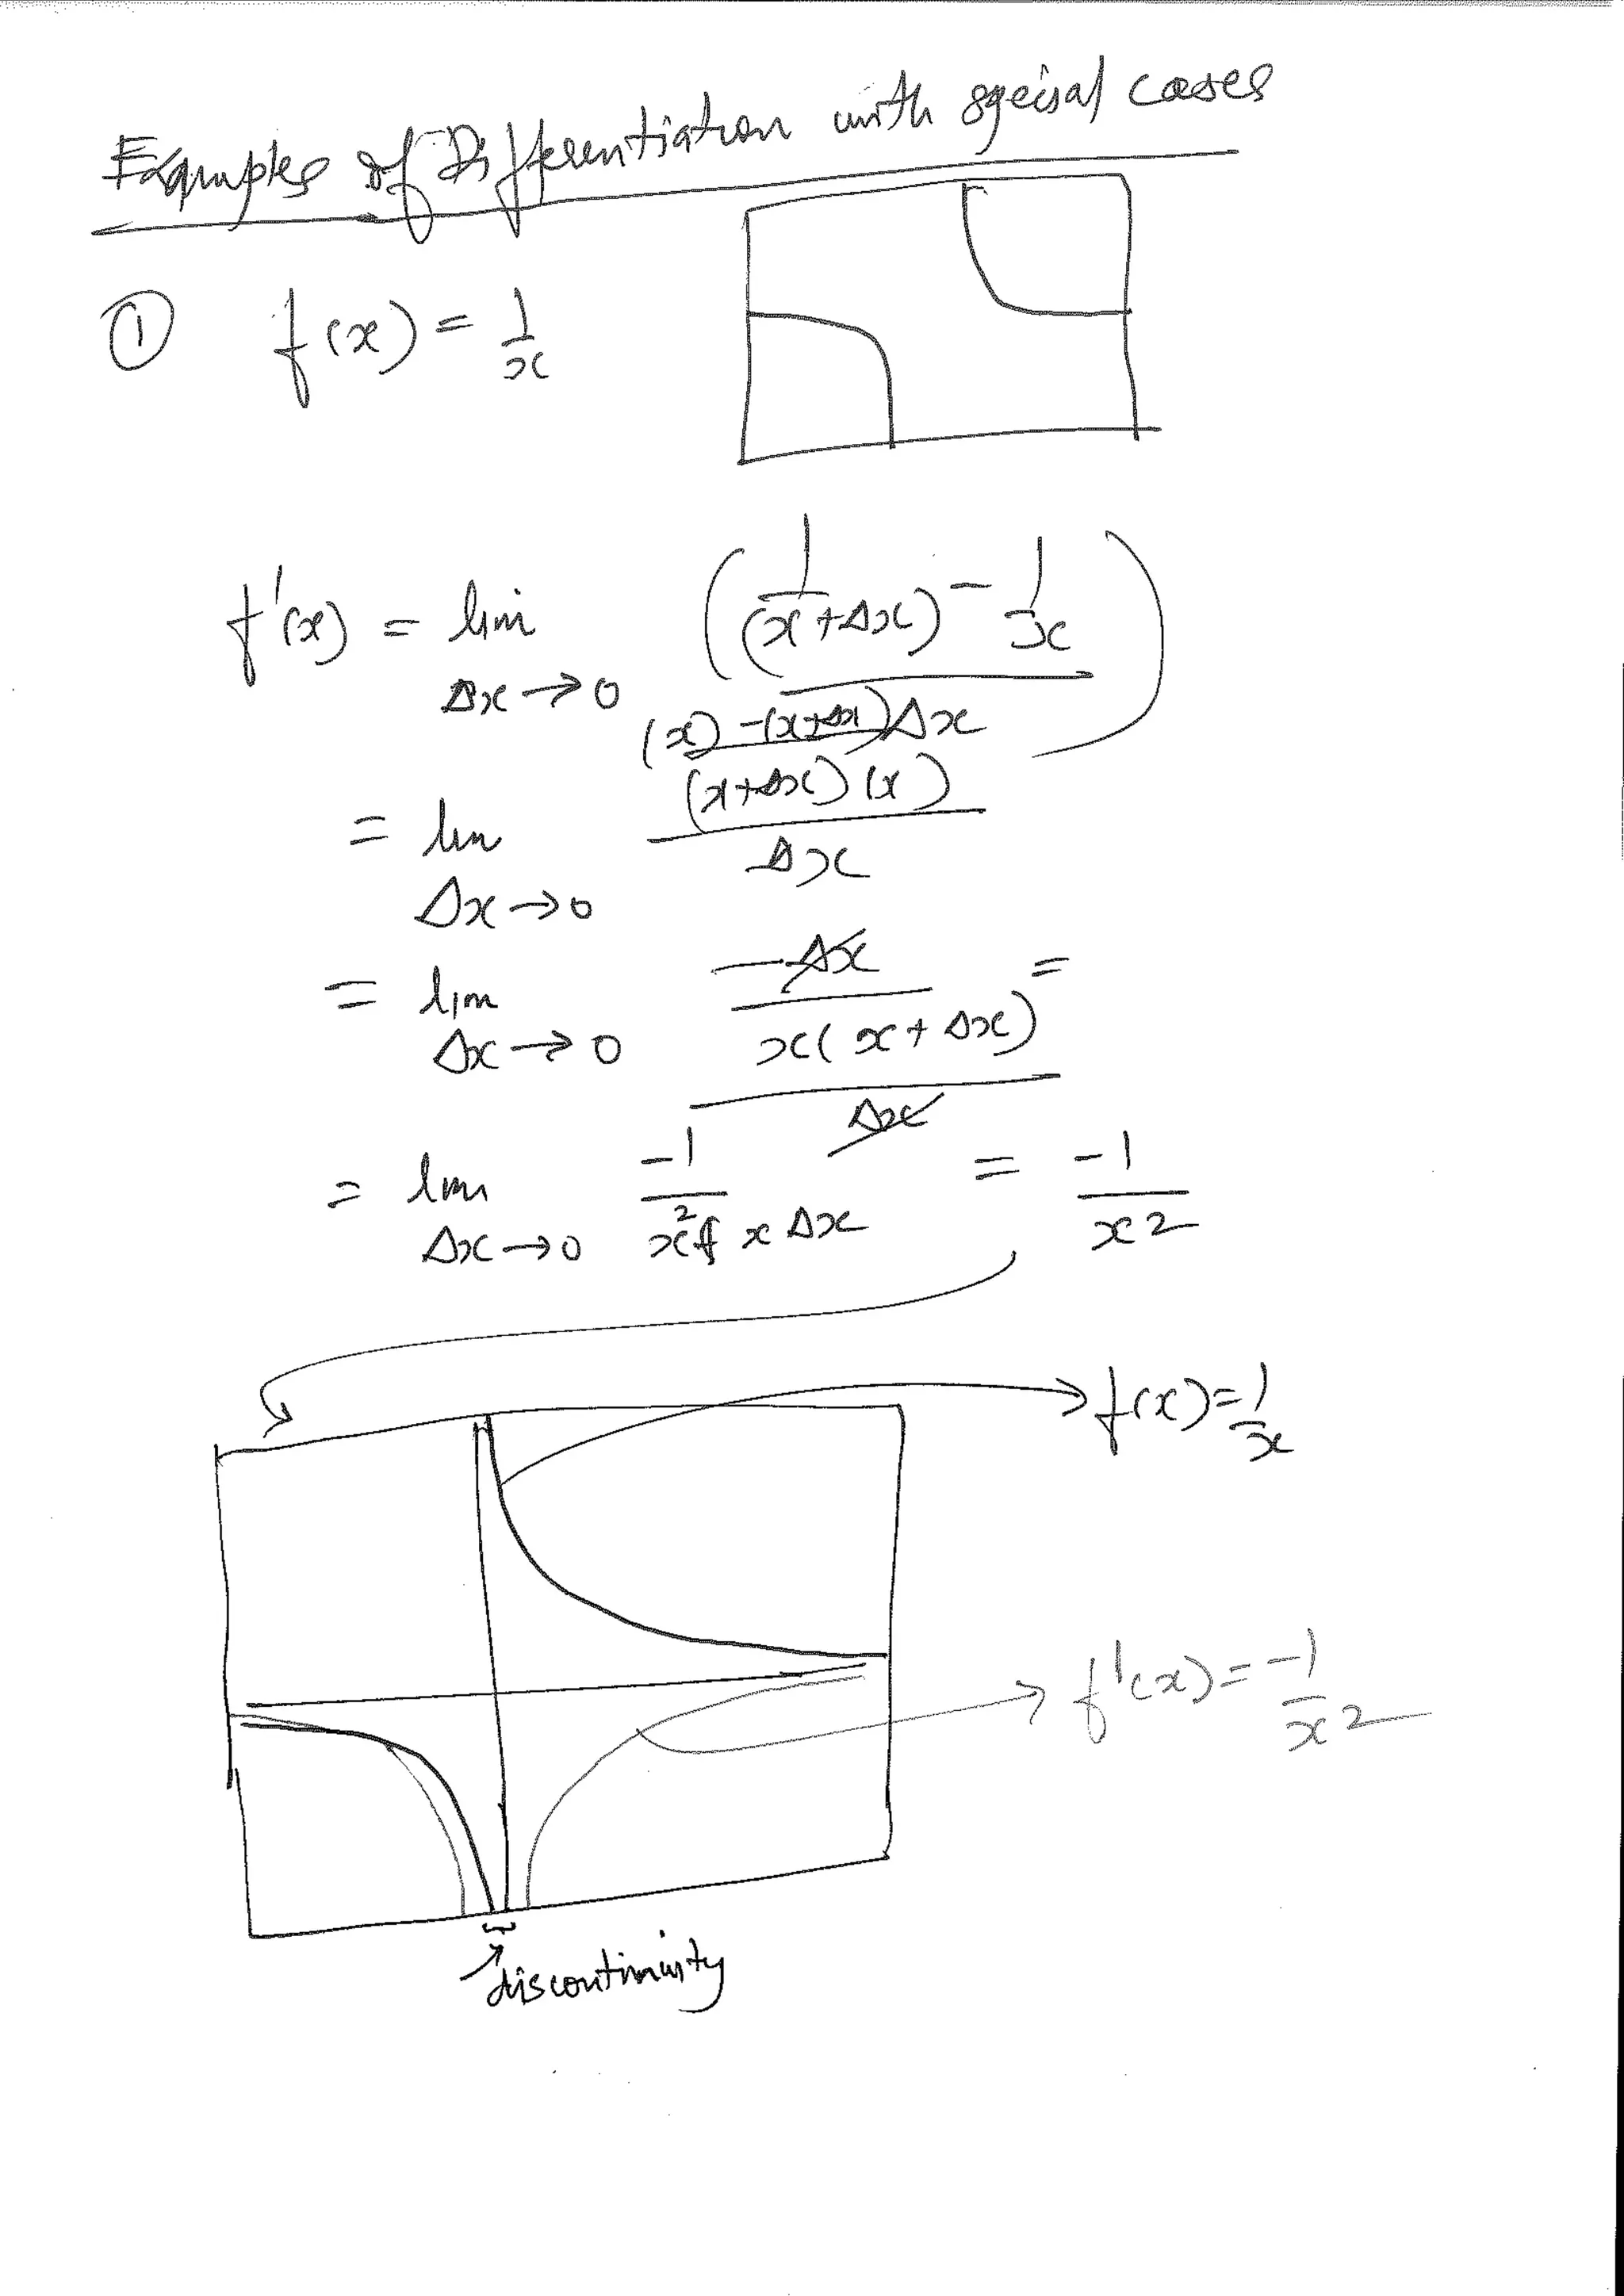 Examples of Differentiation with special cases
① f(x) = 1/x
f'(x) = lim Δx→0 ((1/(x+Δx) - 1/x)/Δx)
= lim Δx→0 (((x) - (x+Δx))/((x+Δx)(x)))/Δx
= lim Δx→0 (-Δx/(x(x+Δx)))/Δx =
= lim Δx→0 -1/(x²+xΔx) = -1/x²
f(x) = 1/x
f'(x) = -1/x²
discontinuity